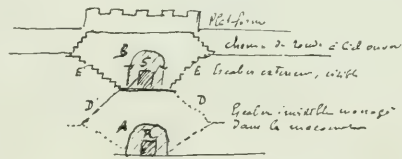 Plateforme
chemin de ronde à Ciel ouvert
B
S
E E Escalier extérieur, visible
D D
Escalier invisible ménagé
A R dans la maçonnerie